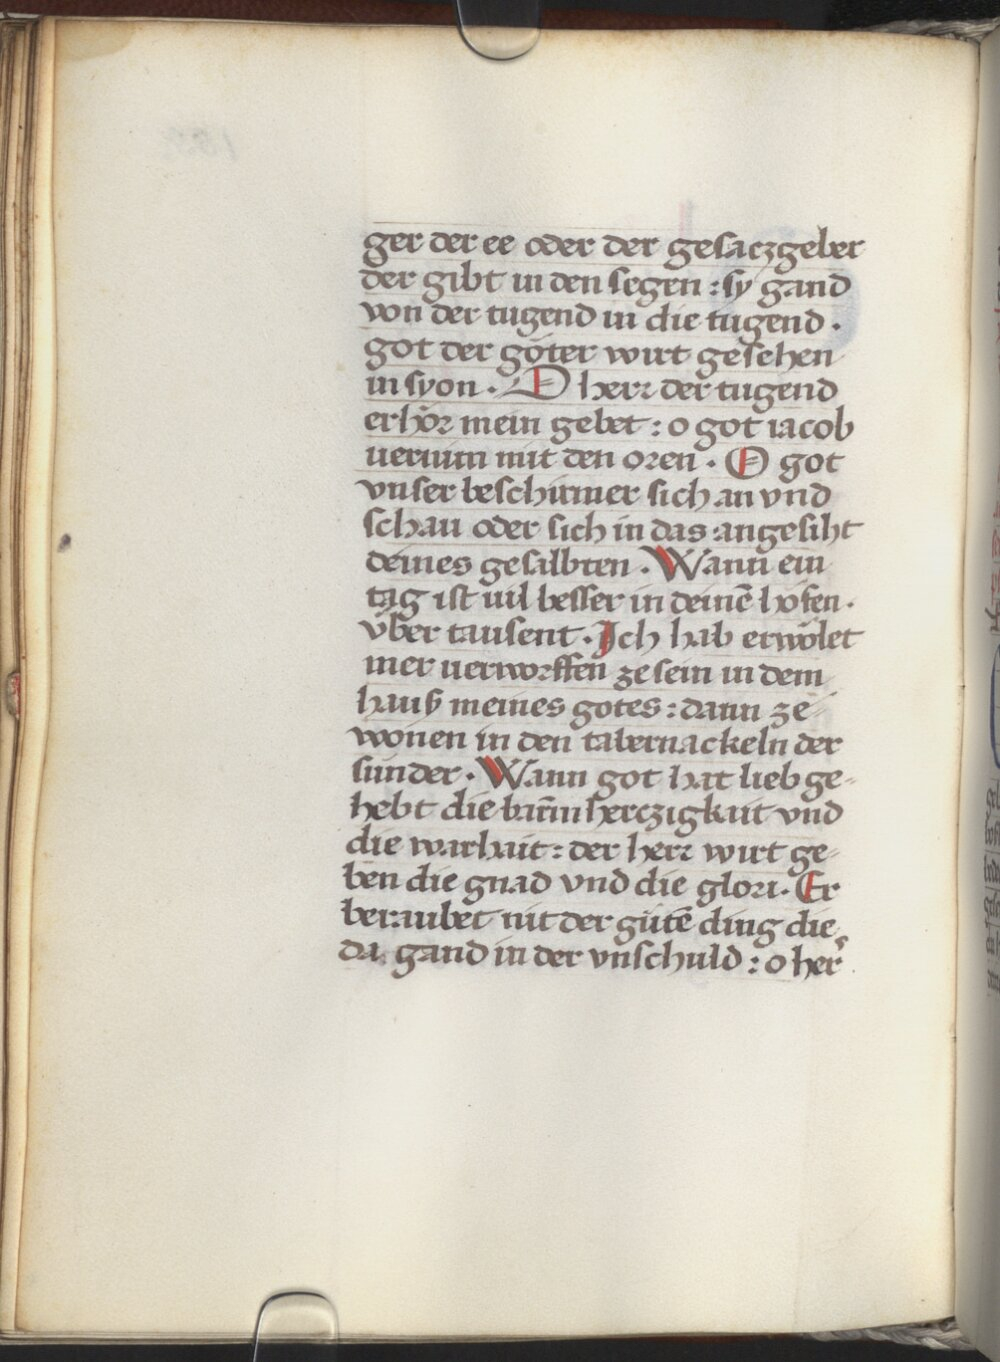 ger der ee oder der gesaczgeber
der gibt in den segen : sy gand
von der tugend in die tugend .
got der göter wirt gesehen
in syon . O herr der tugend
erhör mein gebet : o got iacob
uernim mit den oren . O got
vnser beschirmer sich an vnd
schau oder sich in das angesiht
deines gesalbten . Wann ein
tag ist uil besser in deinē höfen .
vͤber tausent . Ich hab erwölet
mer uerworffen ze sein in dem
hauß meines gotes : dann ze
wonen in den tabernackeln der
sünder . Wann got hat lieb ge-
hebt die barm̄herczigkait vnd
die warhait : der herr wirt ge-
ben die gnad vnd die glori . Er
beraubet nit der gütē ding die
da gand in der vnschuld : o her